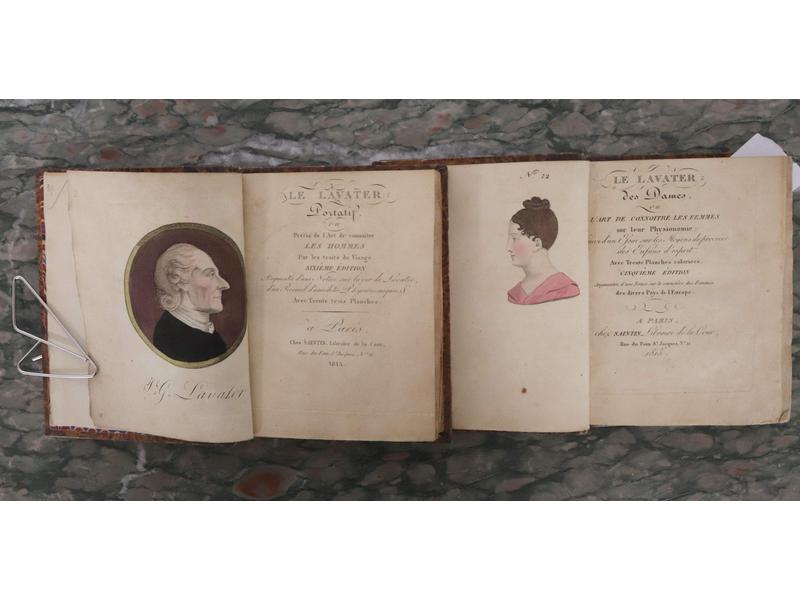 J. G. Lavater
LE LAVATER
Portatif,
OU
Précis de l'Art de connaître
LES HOMMES
Par les traits du Visage
SIXIÈME ÉDITION
Augmentée d'une Notice sur la vie de Lavater,
d'un Recueil d'anecdotes
Avec Trente trois Planches.
à Paris,
Chez SAINTIN, Libraire de la Cour,
Rue du Foin St Jacques, No 11
1815.
No 12
LE LAVATER
des Dames,
OU
L'ART DE CONNOITRE LES FEMMES
sur leur Physionomie;
d'un Essai sur les Moyens de procréer
des Enfans d'esprit
Avec Trente Planches coloriées.
CINQUIÈME ÉDITION
Augmentée d'une Notice sur le caractère des Femmes
des divers Pays de l'Europe.
A PARIS,
chez SAINTIN, Libraire de la Cour,
Rue du Foin St Jacques, No 11
1815.